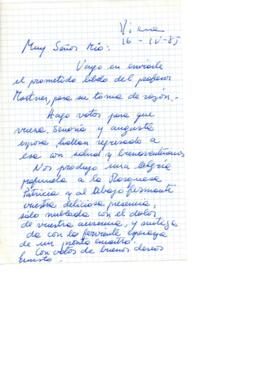 Viena
16 - IV - 85
Muy Señor Mío:
Vayo en enviarle
el prometido libelo del profesor
Mostner, para su toma de razón. -
Hago votos para que
vuesa Señoría y augusta
esposa hallan regresado a
esa con salud y
Nos produjo una alegría
a la
Patricia y al abajo firmante
vuestra deliciosa presencia,
sólo nublada con el dolor
de vuestra ausencia, y mitiga
da con la ferviente esperanza
de un pronto encuentro.
Con votos de buenos deseos
Ernesto.